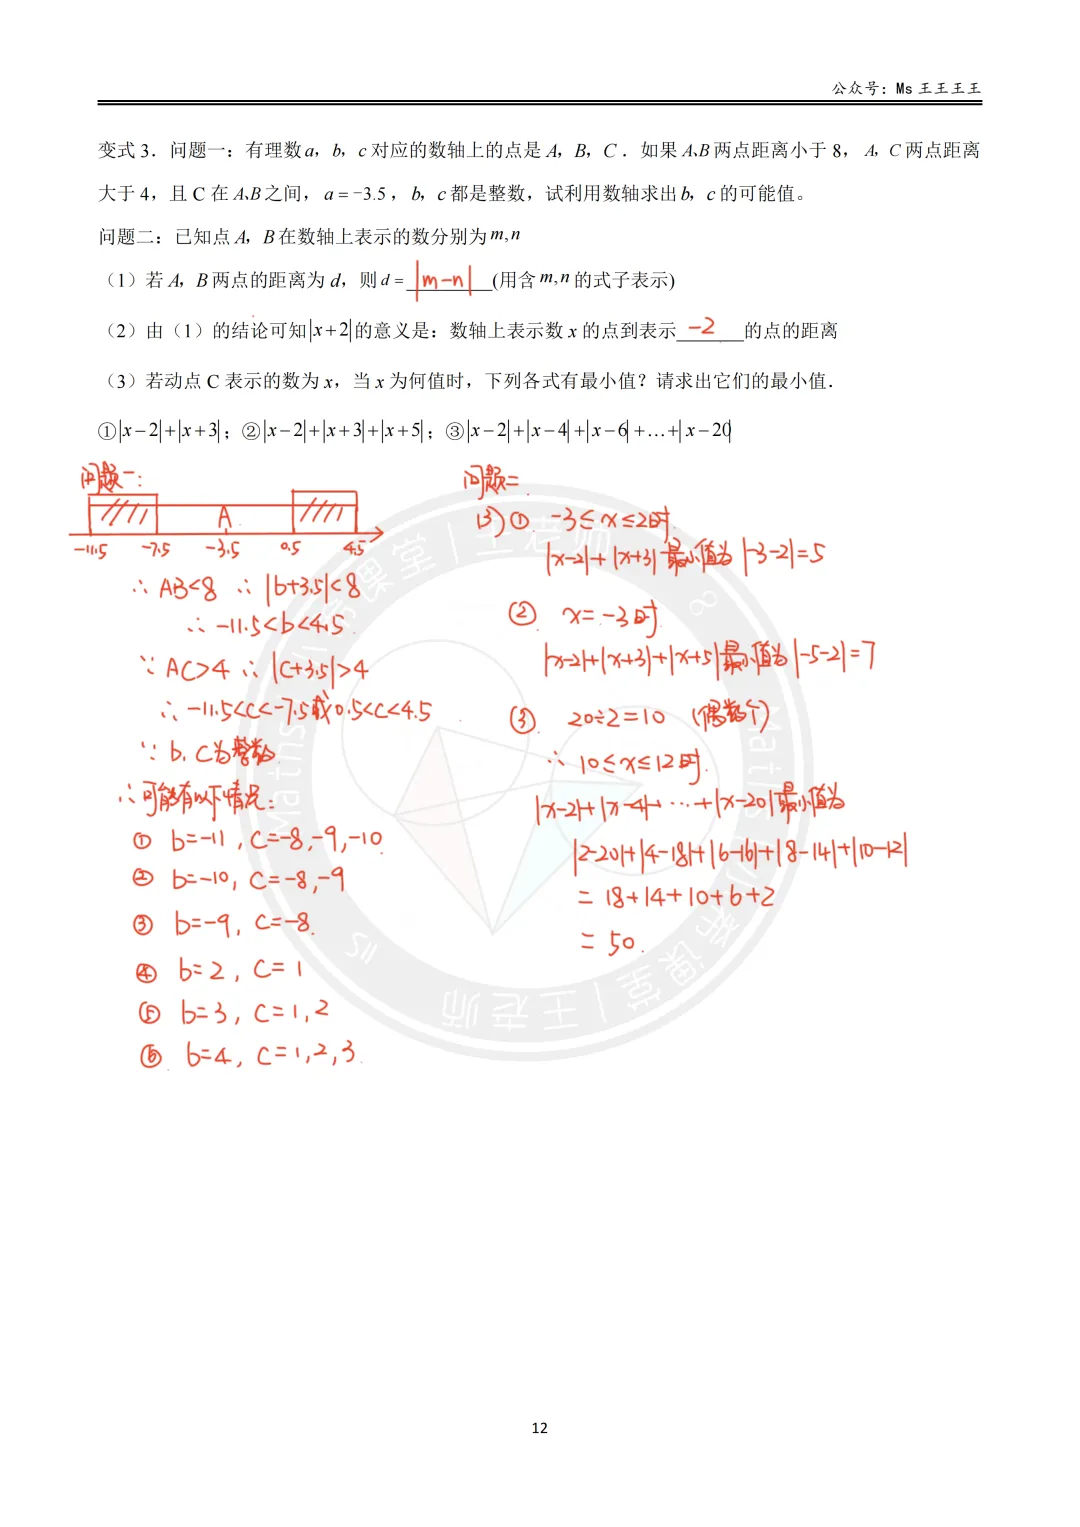 公众号：Ms 王王王王
变式 3．问题一：有理数a，b，c对应的数轴上的点是 A，B，C．如果 A、B 两点距离小于 8，A，C 两点距离
大于 4，且 C 在 A、B 之间，a＝−3.5，b，c 都是整数，试利用数轴求出b，c 的可能值。
问题二：已知点 A，B 在数轴上表示的数分别为 m,n
（1）若 A，B 两点的距离为 d，则 d = |m-n| (用含 m,n 的式子表示)
（2）由（1）的结论可知|x+2|的意义是：数轴上表示数 x 的点到表示 -2 的点的距离
（3）若动点 C 表示的数为 x，当 x 为何值时，下列各式有最小值？请求出它们的最小值．
①|x−2|+|x+3|；②|x−2|+|x+3|+|x+5|；③|x−2|+|x−4|+|x−6|+…+|x−20|
问题一：
A
-11.5 -7.5 -3.5 0.5 4.5
∴ AB<8 ∴ |b+3.5|<8
∴ -11.5<b<4.5
∵ AC>4 ∴ |C+3.5|>4
∴ -11.5<C<-7.5或0.5<C<4.5
∵ b, C为整数
∴可能有以下情况：
① b=-11, C=-8,-9,-10
② b=-10, C=-8,-9
③ b=-9, C=-8.
④ b=2, C=1
⑤ b=3, C=1,2
⑥ b=4, C=1,2,3.
问题二
(3) ① -3≤x≤2时
|x-2|+|x+3|最小值为|-3-2|=5
② x=-3时.
|x-2|+|x+3|+|x+5|最小值为|-5-2|=7
③ 20÷2=10 (偶数个)
∴ 10≤x≤12时.
|x-2|+|x-4|+…+|x-20|最小值为
|2-20|+|4-18|+|6-16|+|8-14|+|10-12|
= 18+14+10+6+2
= 50.
王老师
Maths
Maths
王老师
12